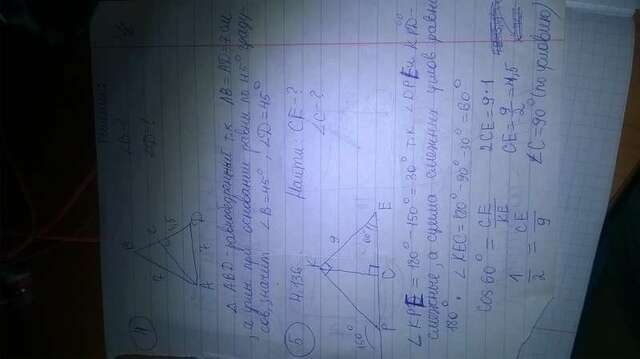 Решение:
4
∠B-?
∠D-?
B
7
C
4,5
A
7
D
Δ ABD - равнобедренный т.к AB = AD = 7 см
, а углы при основании равны по 45° граду-
сов, значит ∠B = 45°, ∠D = 45°
5
4.136.
Найти: CE-?
∠C-?
K
9
150°
60°
P
C
E
∠KPE = 180° - 150° = 30° т.к ∠DPE и KPD-
смежные, а сумма смежных углов равна
180°. ∠KEC = 180° - 90° - 30° = 60°
cos 60° = CE/KE
2CE = 9·1
1/2 = CE/9
CE = 9/2 = 4,5
∠C = 90° (по условию)